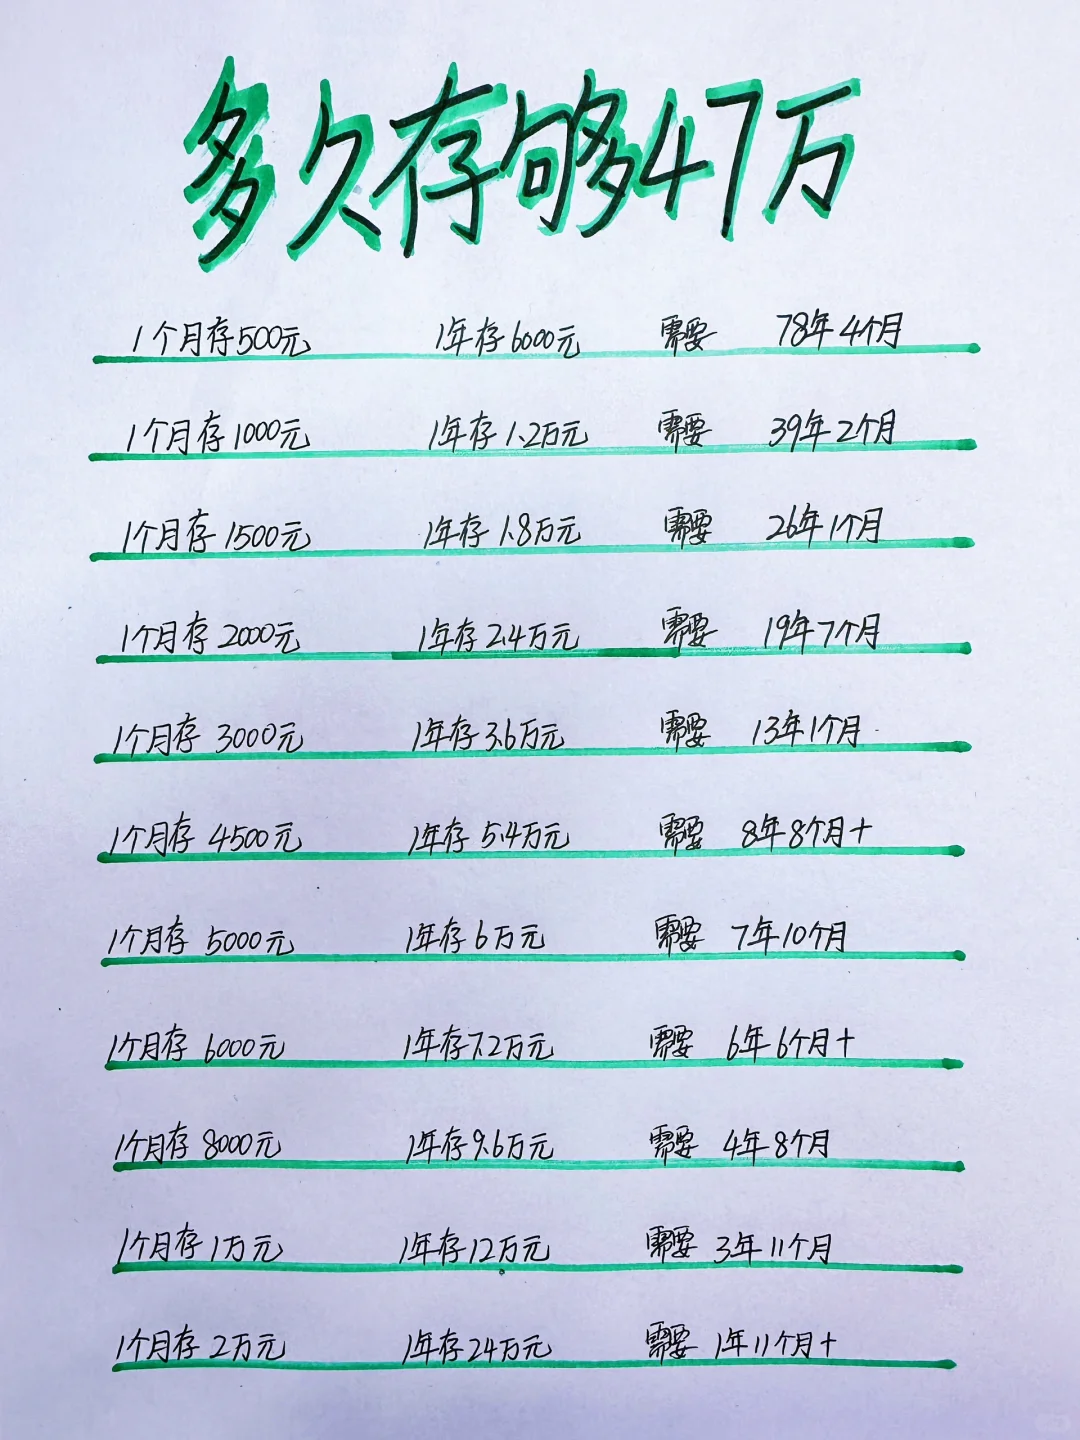 多久存够47万
1个月存500元 1年存6000元 需要 78年4个月
1个月存1000元 1年存1.2万元 需要 39年2个月
1个月存1500元 1年存1.8万元 需要 26年1个月
1个月存2000元 1年存2.4万元 需要 19年7个月
1个月存3000元 1年存3.6万元 需要 13年1个月
1个月存4500元 1年存5.4万元 需要 8年8个月+
1个月存5000元 1年存6万元 需要 7年10个月
1个月存6000元 1年存7.2万元 需要 6年6个月+
1个月存8000元 1年存9.6万元 需要 4年8个月
1个月存1万元 1年存12万元 需要 3年11个月
1个月存2万元 1年存24万元 需要 1年11个月+